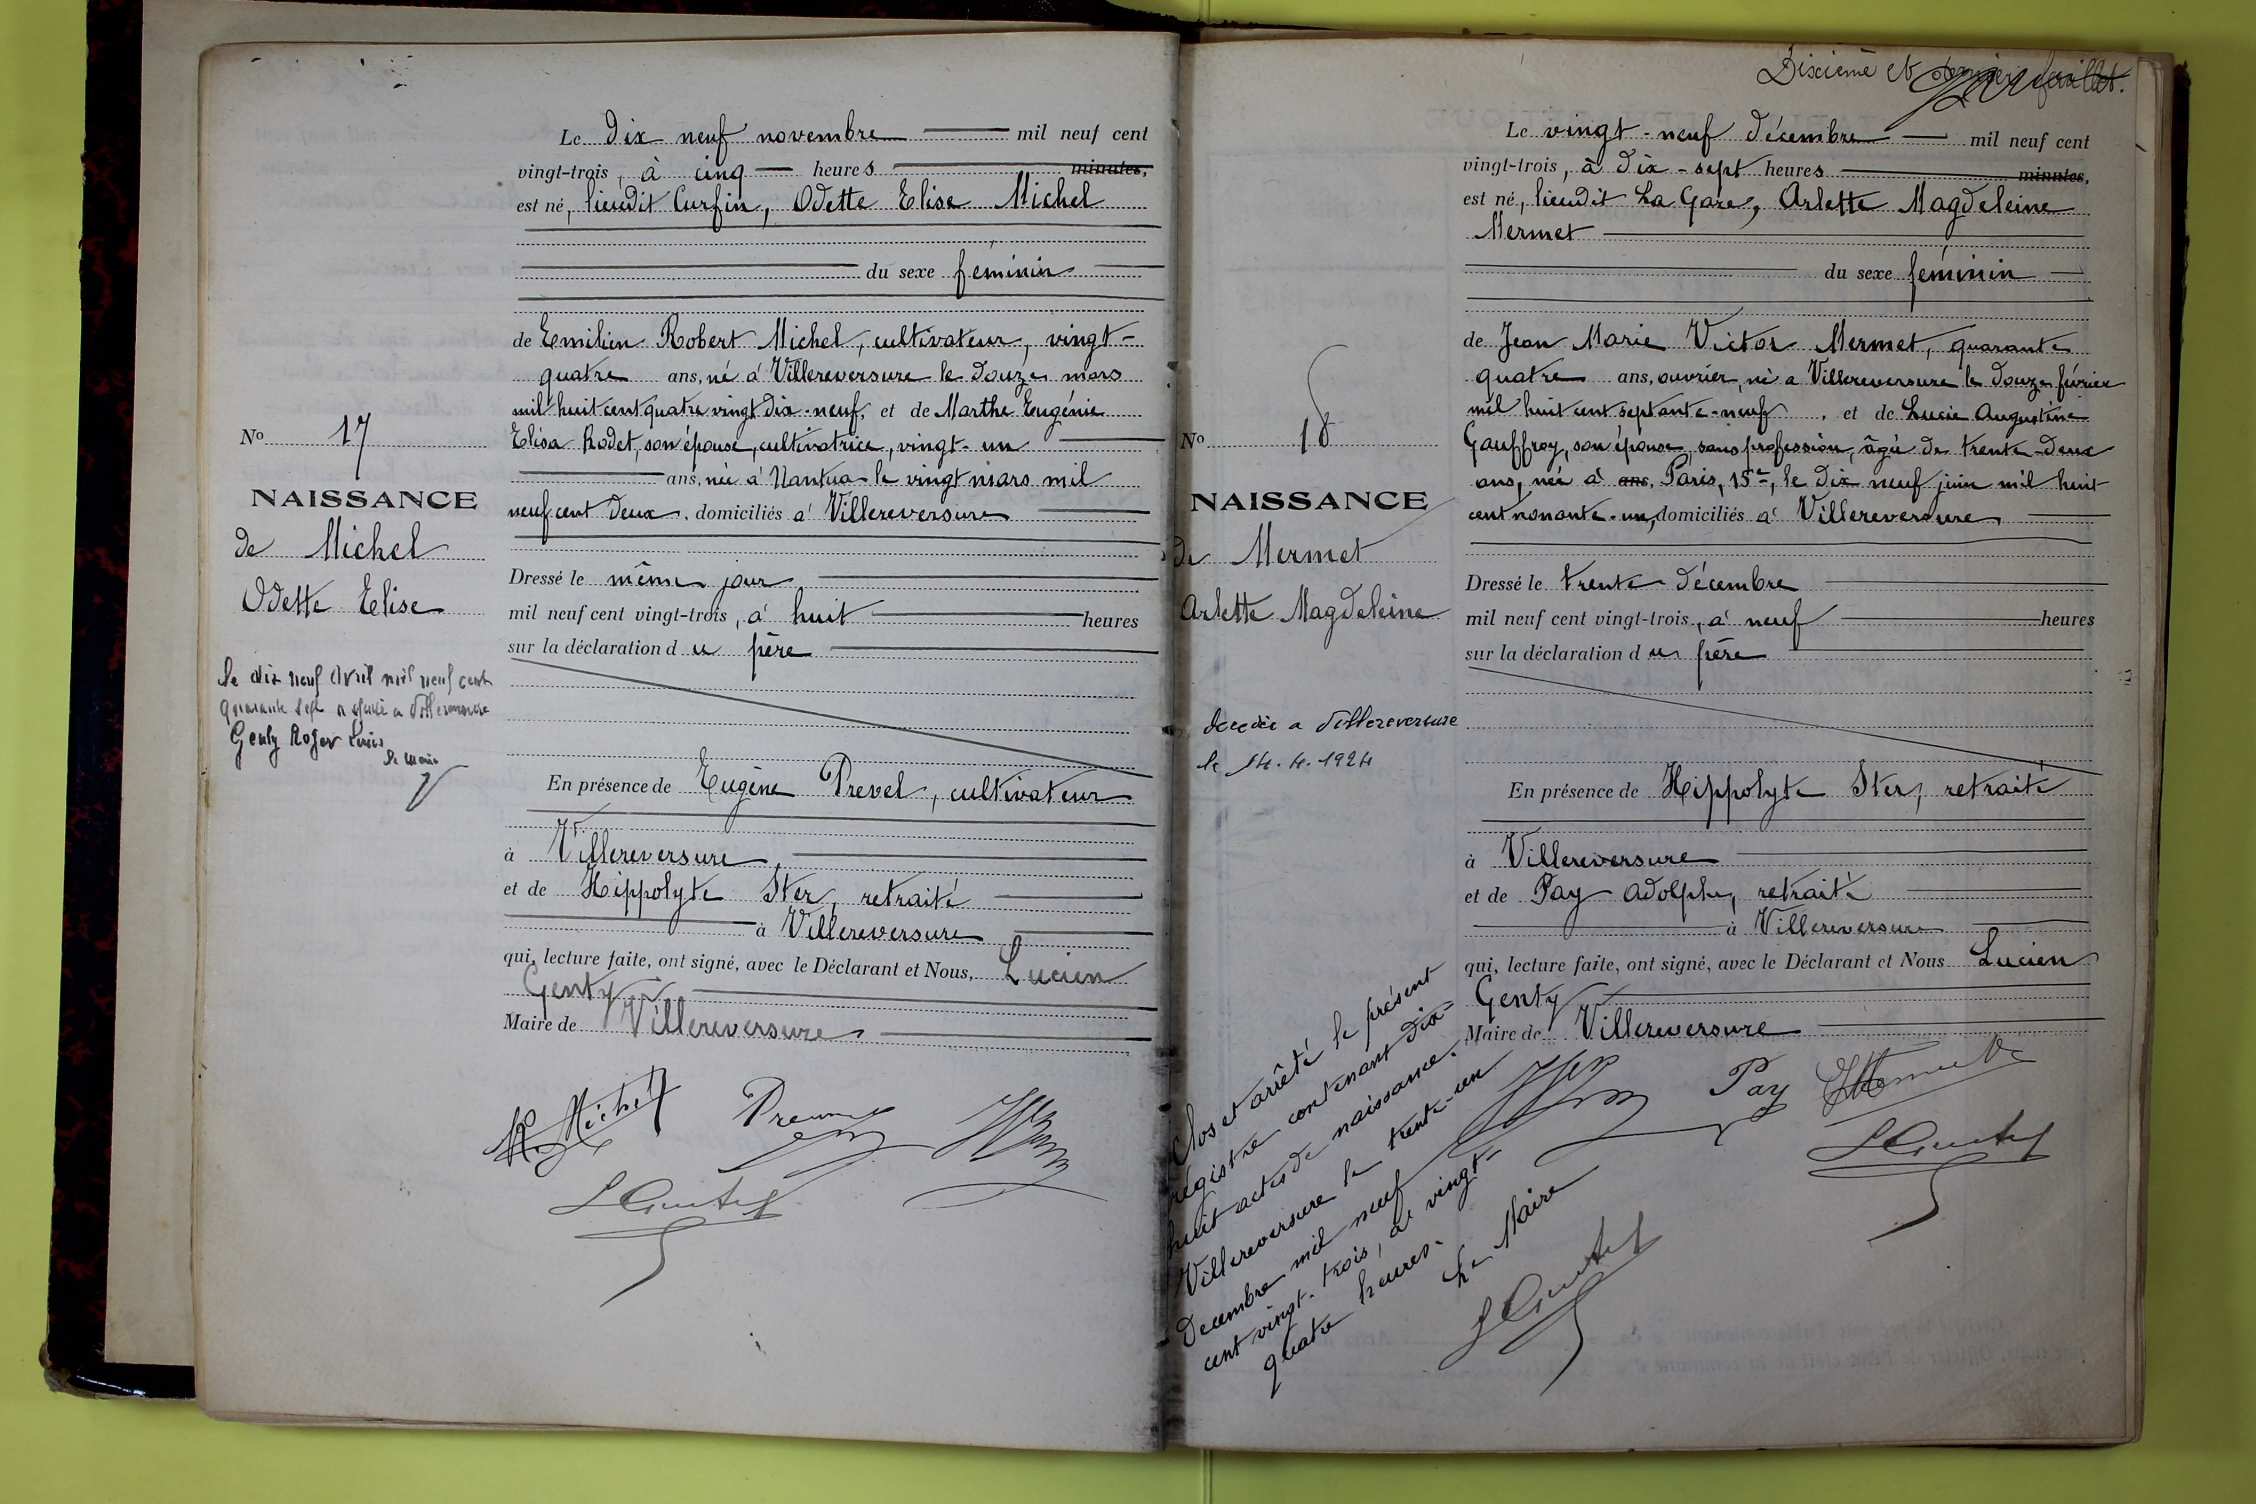 Le dix neuf novembre mil neuf cent
vingt-trois, à cinq heures minutes,
est né, lieudit Curfin, Odette Elise Michel
du sexe féminin
de Emilien Robert Michel, cultivateur, vingt-
quatre ans, né à Villereversure le douze mars
mil huit cent quatre vingt dix-neuf, et de Marthe Eugénie
Elisa Rodet, son épouse, cultivatrice, vingt-un
ans, née à Nantua le vingt mars mil
neuf cent deux, domiciliés à Villereversure
Dressé le même jour
mil neuf cent vingt-trois, à huit heures
sur la déclaration du père
En présence de Eugène Prevel, cultivateur
à Villereversure,
et de Hippolyte Ster, retraité
à Villereversure
qui, lecture faite, ont signé, avec le Déclarant et Nous, Lucien
Genty
Maire de Villereversure
No 17
NAISSANCE
de Michel
Odette Elise
Le dix neuf Avril mil neuf cent
quarante sept a Villereversure
Genty Roger Louis
Le Maire
Dixième et dernier feuillet.
Le vingt-neuf décembre mil neuf cent
vingt-trois, à dix-sept heures minutes,
est né, lieudit La Gare, Arlette Magdeleine
Mermet
du sexe féminin
de Jean Marie Victor Mermet, quarante
quatre ans, ouvrier, né à Villereversure le douze février
mil huit cent septante-neuf, et de Lucie Augustine
Gauffroy, son épouse, sans profession, âgée de trente-deux
ans, née à ans, Paris, 15e, le dix neuf juin mil huit
cent nonante-un, domiciliés à Villereversure
Dressé le trente décembre
mil neuf cent vingt-trois, à neuf heures
sur la déclaration du père
En présence de Hippolyte Ster, retraité
à Villereversure
et de Pay Adolphe, retraité
à Villereversure
qui, lecture faite, ont signé, avec le Déclarant et Nous Lucien
Genty
Maire de Villereversure
Pay
No 18
NAISSANCE
de Mermet
Arlette Magdeleine
décédée a Villereversure
le 14.4.1924
Clos et arrêté le présent
régistre contenant dix-
huit actes de naissance.
Villereversure le trente-un
Décembre mil neuf
cent vingt-trois, à vingt-
quatre heures.
Le Maire